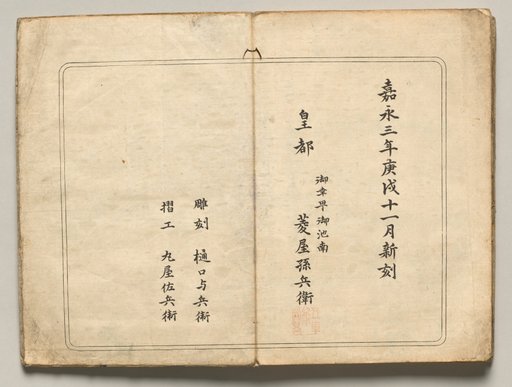 嘉永三年庚戌十一月新刻
皇都
御幸早御池南
菱屋孫兵衛
雕刻 樋口与兵衛
摺工 丸屋佐兵衛